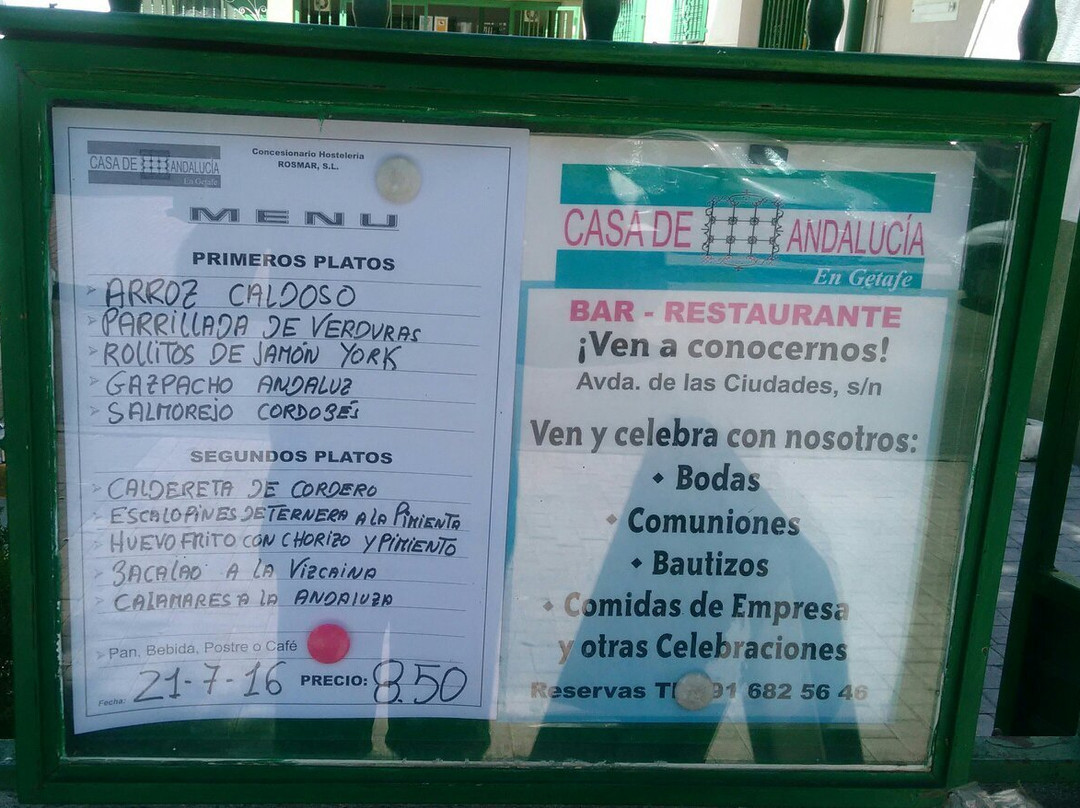 CASA DE ANDALUCÍA
En Getafe
Concesionario Hosteleria
ROSMAR, S.L.
MENU
PRIMEROS PLATOS
ARROZ CALDOSO
PARRILLADA DE VERDURAS
ROLLITOS DE JAMÓN YORK
GAZPACHO ANDALUZ
SALMOREJO CORDOBÉS
SEGUNDOS PLATOS
CALDERETA DE CORDERO
ESCALOPINES DE TERNERA A LA PIMIENTA
HUEVO FRITO CON CHORIZO Y PIMIENTO
BACALAO A LA VIZCAINA
CALAMARES A LA ANDALUZA
Pan, Bebida, Postre o Café
Fecha: 21-7-16 PRECIO: 8.50
CASA DE ANDALUCÍA
En Getafe
BAR - RESTAURANTE
¡Ven a conocernos!
Avda. de las Ciudades, s/n
Ven y celebra con nosotros:
• Bodas
• Comuniones
• Bautizos
• Comidas de Empresa
y otras Celebraciones
Reservas 91 682 56 46